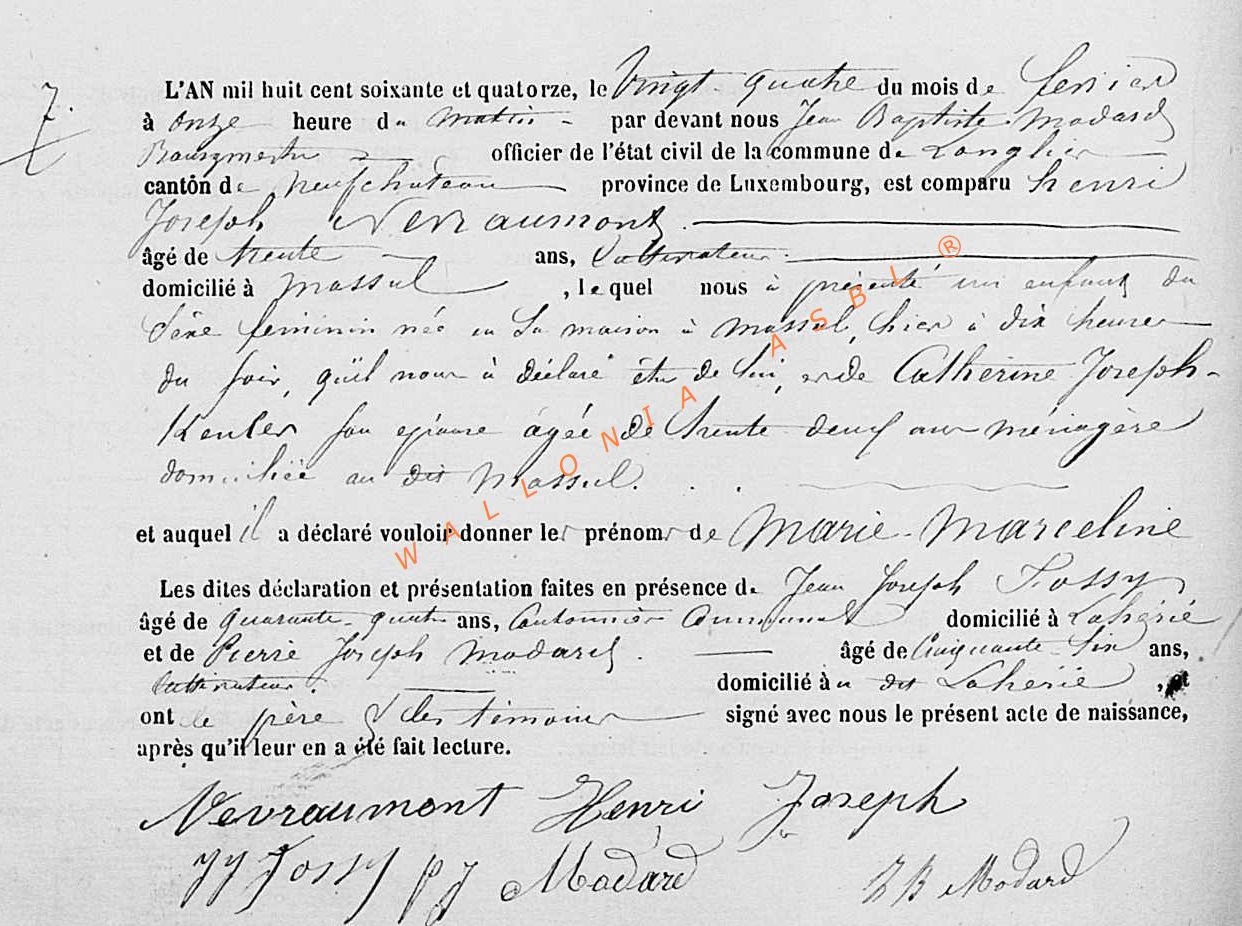 7.
L'AN mil huit cent soixante et quatorze, le Vingt quatre du mois de fevrier
à onze heure du matin par devant nous Jean Baptiste Modard
Bourgmestre officier de l'état civil de la commune de Longlier
cantôn de Neufchateau province de Luxembourg, est comparu henri
Joseph Nevraumont
âgé de trente ans, Cultivateur
domicilié à Massul, lequel nous à présenté un enfant du
sexe feminin née en Sa maison à Massul, hier à dix heures
du soir, qu'il nous à déclaré être de lui, et de Catherine Joseph
Keuler son épouse âgée de trente deux ans ménagère
domiciliée au dit Massul.
et auquel il a déclaré vouloir donner les prénoms de Marie-Marceline
Les dites déclaration et présentation faites en présence de Jean Joseph Fossy
âgé de quarante-quatre ans, Cantonnier Communal domicilié à Lahérie
et de Pierre Joseph Modard. âgé de Cinquante-Six ans,
Cultivateur. domicilié au dit Laherie, et
ont le père & les témoins signé avec nous le présent acte de naissance,
après qu'il leur en a été fait lecture.
Nevraumont Henri Joseph
JJ Fossy pJ Modard JB Modard
WALLONIA ASBL ®